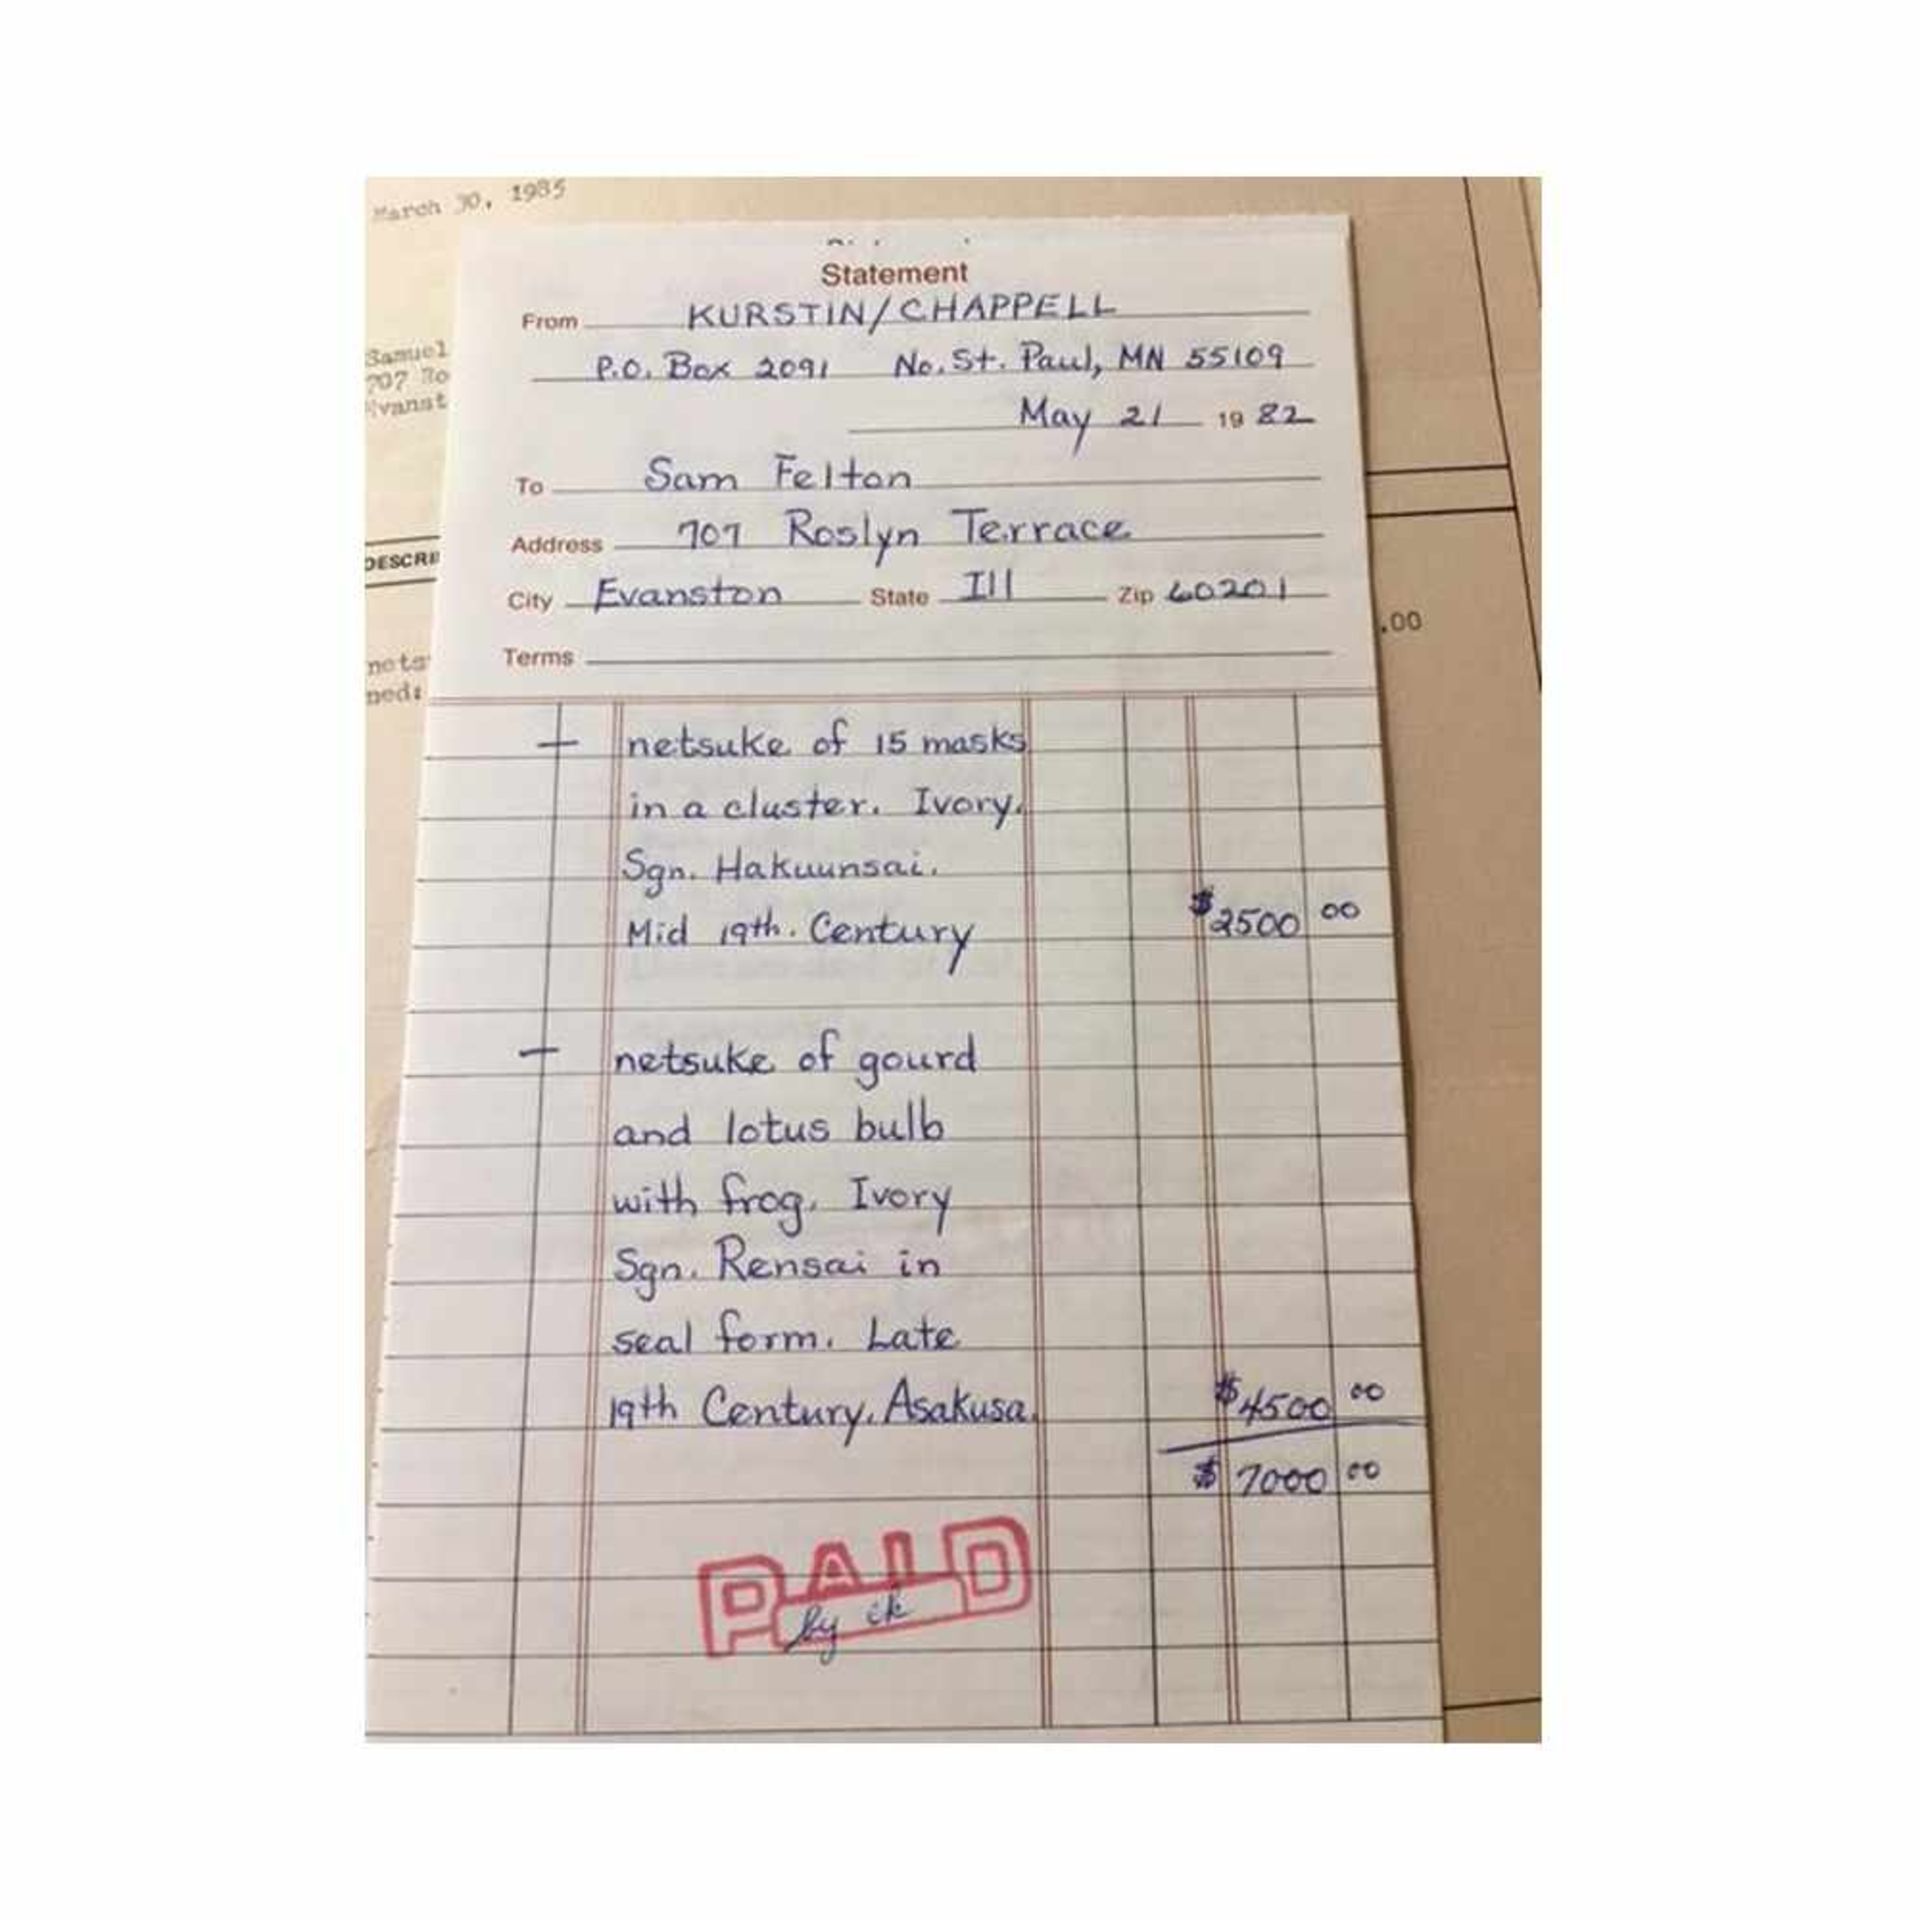 March 30, 1985
Samuel
707 Ro
Evanst
DESCRI
nets
ned:
.00
Statement
From KURSTIN/CHAPPELL
P.O. Box 2091 No. St. Paul, MN 55109
May 21 19 82
To Sam Felton
Address 707 Roslyn Terrace
City Evanston State Ill Zip 60201
Terms
netsuke of 15 masks
in a cluster. Ivory.
Sgn. Hakuunsai.
Mid 19th. Century $2500 00
netsuke of gourd
and lotus bulb
with frog. Ivory
Sgn. Rensai in
seal form. Late
19th Century. Asakusa. $4500 00
$7000 00
PAID
by ck